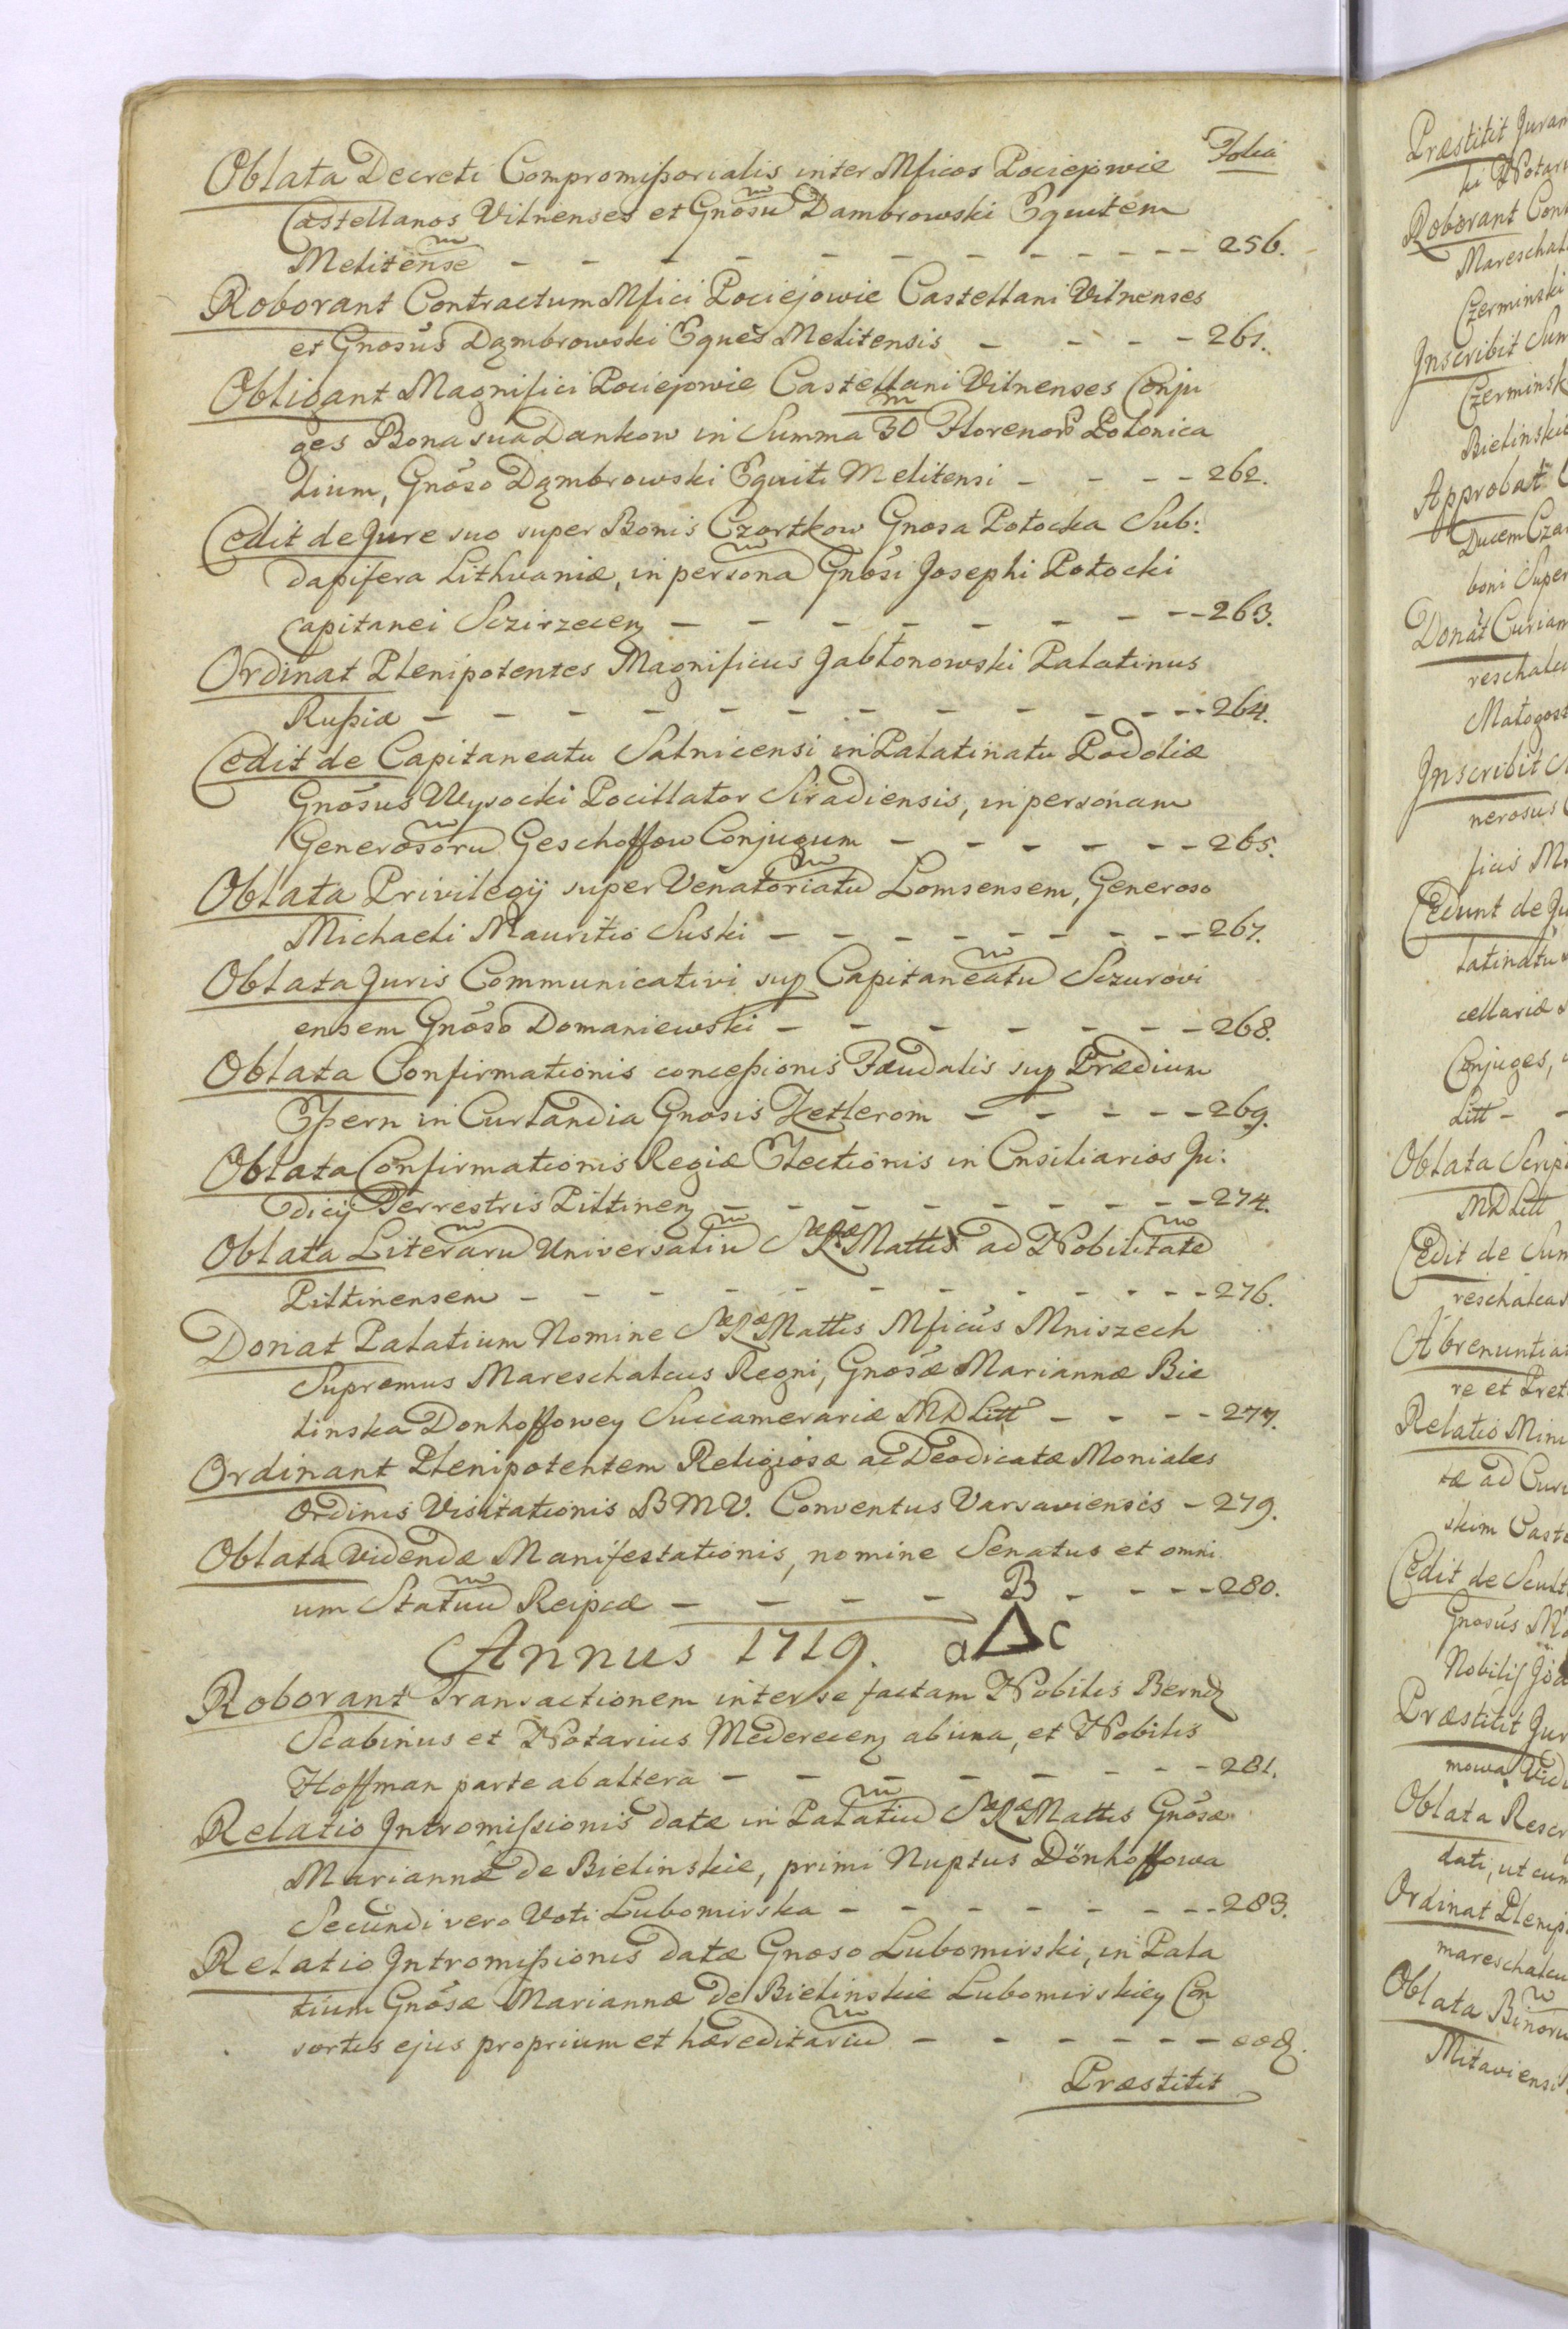 Folia
Oblata Decreti Compromissorialis inter Mficos Pociejowie
Castellanos Vilnenses et Gnosũ Dambrowski Equitem
Melitense - - - - - - - - - - 256.
Roborant Contractum Mfici Pociejowie Castellani Vilnenses
et Gnosus Dąmbrowski Eques Melitensis - - - - 261.
Obligant Magnifici Pociejowie Castellani Vilnenses Conju
ges Bona sua Dankow in Summa 30 m Florenorũ Polonica
lium, Gnoso Dąmbrowski Equiti Melitensi - - - - 262.
Cedit de Jure suo super Bonis Czortkow Gnosa Potocka Sub:
dapifera Lithvaniæ, in persona Gnosi Josephi Potocki
Capitanei Sczirzecen - - - - - - - - - 263.
Ordinat Plenipotentes Magnificus Jabłonowski Palatinus
Russiæ - - - - - - - - - - - - 264.
Cedit de Capitaneatu Salnicensi in Palatinatu Podoliæ
Gnosus Wysocki Pocillator Siradiensis, in personam
Generosorũ Geschoffow Conjugum - - - - - - 265.
Oblata Privilegij super Venatoriatũ Lomsensem, Generoso
Michaeli Mauritio Suski - - - - - - - - 267.
Oblata Juris Communicativi sup Capitaneatũ Sczurovi
ensem Gnoso Domaniewski - - - - - - - 268.
Oblata Confirmationis concessionis Fæudalis sup Prædium
Essern in Curlandia Gnosis Ketlerom - - - - - 269.
Oblata Confirmationis Regiæ Electionis in Cnsiliarios Ju:
dicij Terrestris Piltinen - - - - - - - - 274.
Oblata Literarũ Universaliũ SæRæ Mattis ad Nobilitatẽ
Piltinensem - - - - - - - - - - - 276.
Donat Palatium Nomine SæRæ Mattis Mficus Mniszech
Supremus Mareschalcus Regni, Gnosæ Mariannæ Bie
linska Donhoffowey Succamerariæ MDLitt - - - - 277.
Ordinant Plenipotentem Religiosæ ac Deodicatæ Moniales
Ordinis Visitationis BMV. Conventus Varsaviensis - 279.
Oblata Videndæ Manifestationis, nomine Senatus et omni
um Statuũ Reipcæ - - - - B - - - - 280.
Annus 1719. a △ c
Roborant Transactionem inter se factam Nobilis Bernd
Scabinus et Notarius Mederecen ab una, et Nobilis
Hoffman parte ab altera - - - - - - - - 281.
Relatio Intromissionis datæ in Palatiũ SæRæ Mattis Gnosæ
Mariannæ de Bielinskie, primi Nuptus Dönhoffowa
Secundi vero Voti Lubomirska - - - - - - - 283.
Relatio Intromissionis datæ Gnoso Lubomirski, in Pala
tium Gnosæ Mariannæ de Bielinskie Lubomirskiey Con
sortis ejus proprium et hæreditariũ - - - - - - eod.
Præstitit
Præstitit Juram
ki Notar
Roborant Con
Mareschal
Czerminski
Inscribit Sum
Czerminsk
Bielinski
Approbat C
Ducem Cza
boni Super
Donat Curiam
reschalc
Małogos
Inscribit
nerosus
ficis M
Cedunt de Ju
latinatu
cellariæ
Conjuges,
Litt - -
Oblata Scrip
MDLitt
Cedit de Sum
reschalca
Abrenuntiat
re et Pret
Relatio Mini
tæ ad Curi
skim Caste
Cedit de Scult
Gnosus M
Nobilis
Præstitit Jur
mowa Vid
Oblata Rescr
dati, ut cum
Ordinat Plenip
mareschalcu
Oblata Binorũ
Mitaviensi